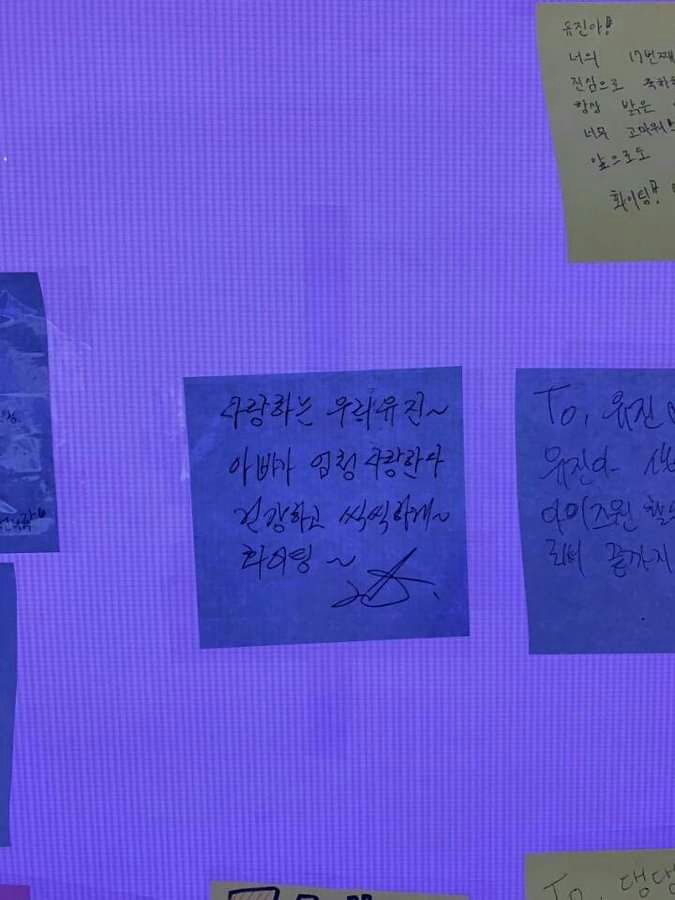 유진아!
너의 17번째
진심으로
항상 밝은
너무 고마워
앞으로도
화이팅!
사랑하는 우리유진~
아빠가 엄청 사랑한다
건강하고 씩씩하게~
화이팅 ~
To. 유진
유진아
아이즈원
끝까지
To. 댕댕